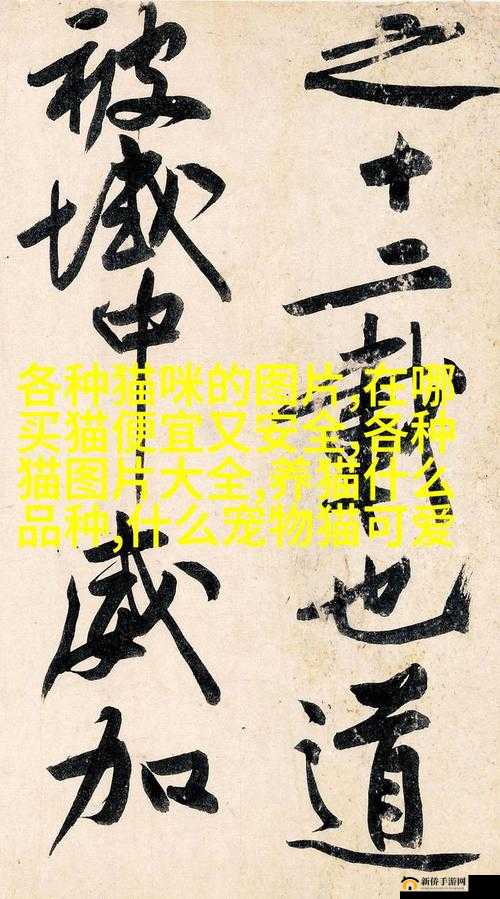 之十二載也道
被域中威加
各种猫咪的图片,在哪
买猫便宜又安全,各种
猫图片大全,养猫什么
品种,什么宠物猫可爱
新侨手游网